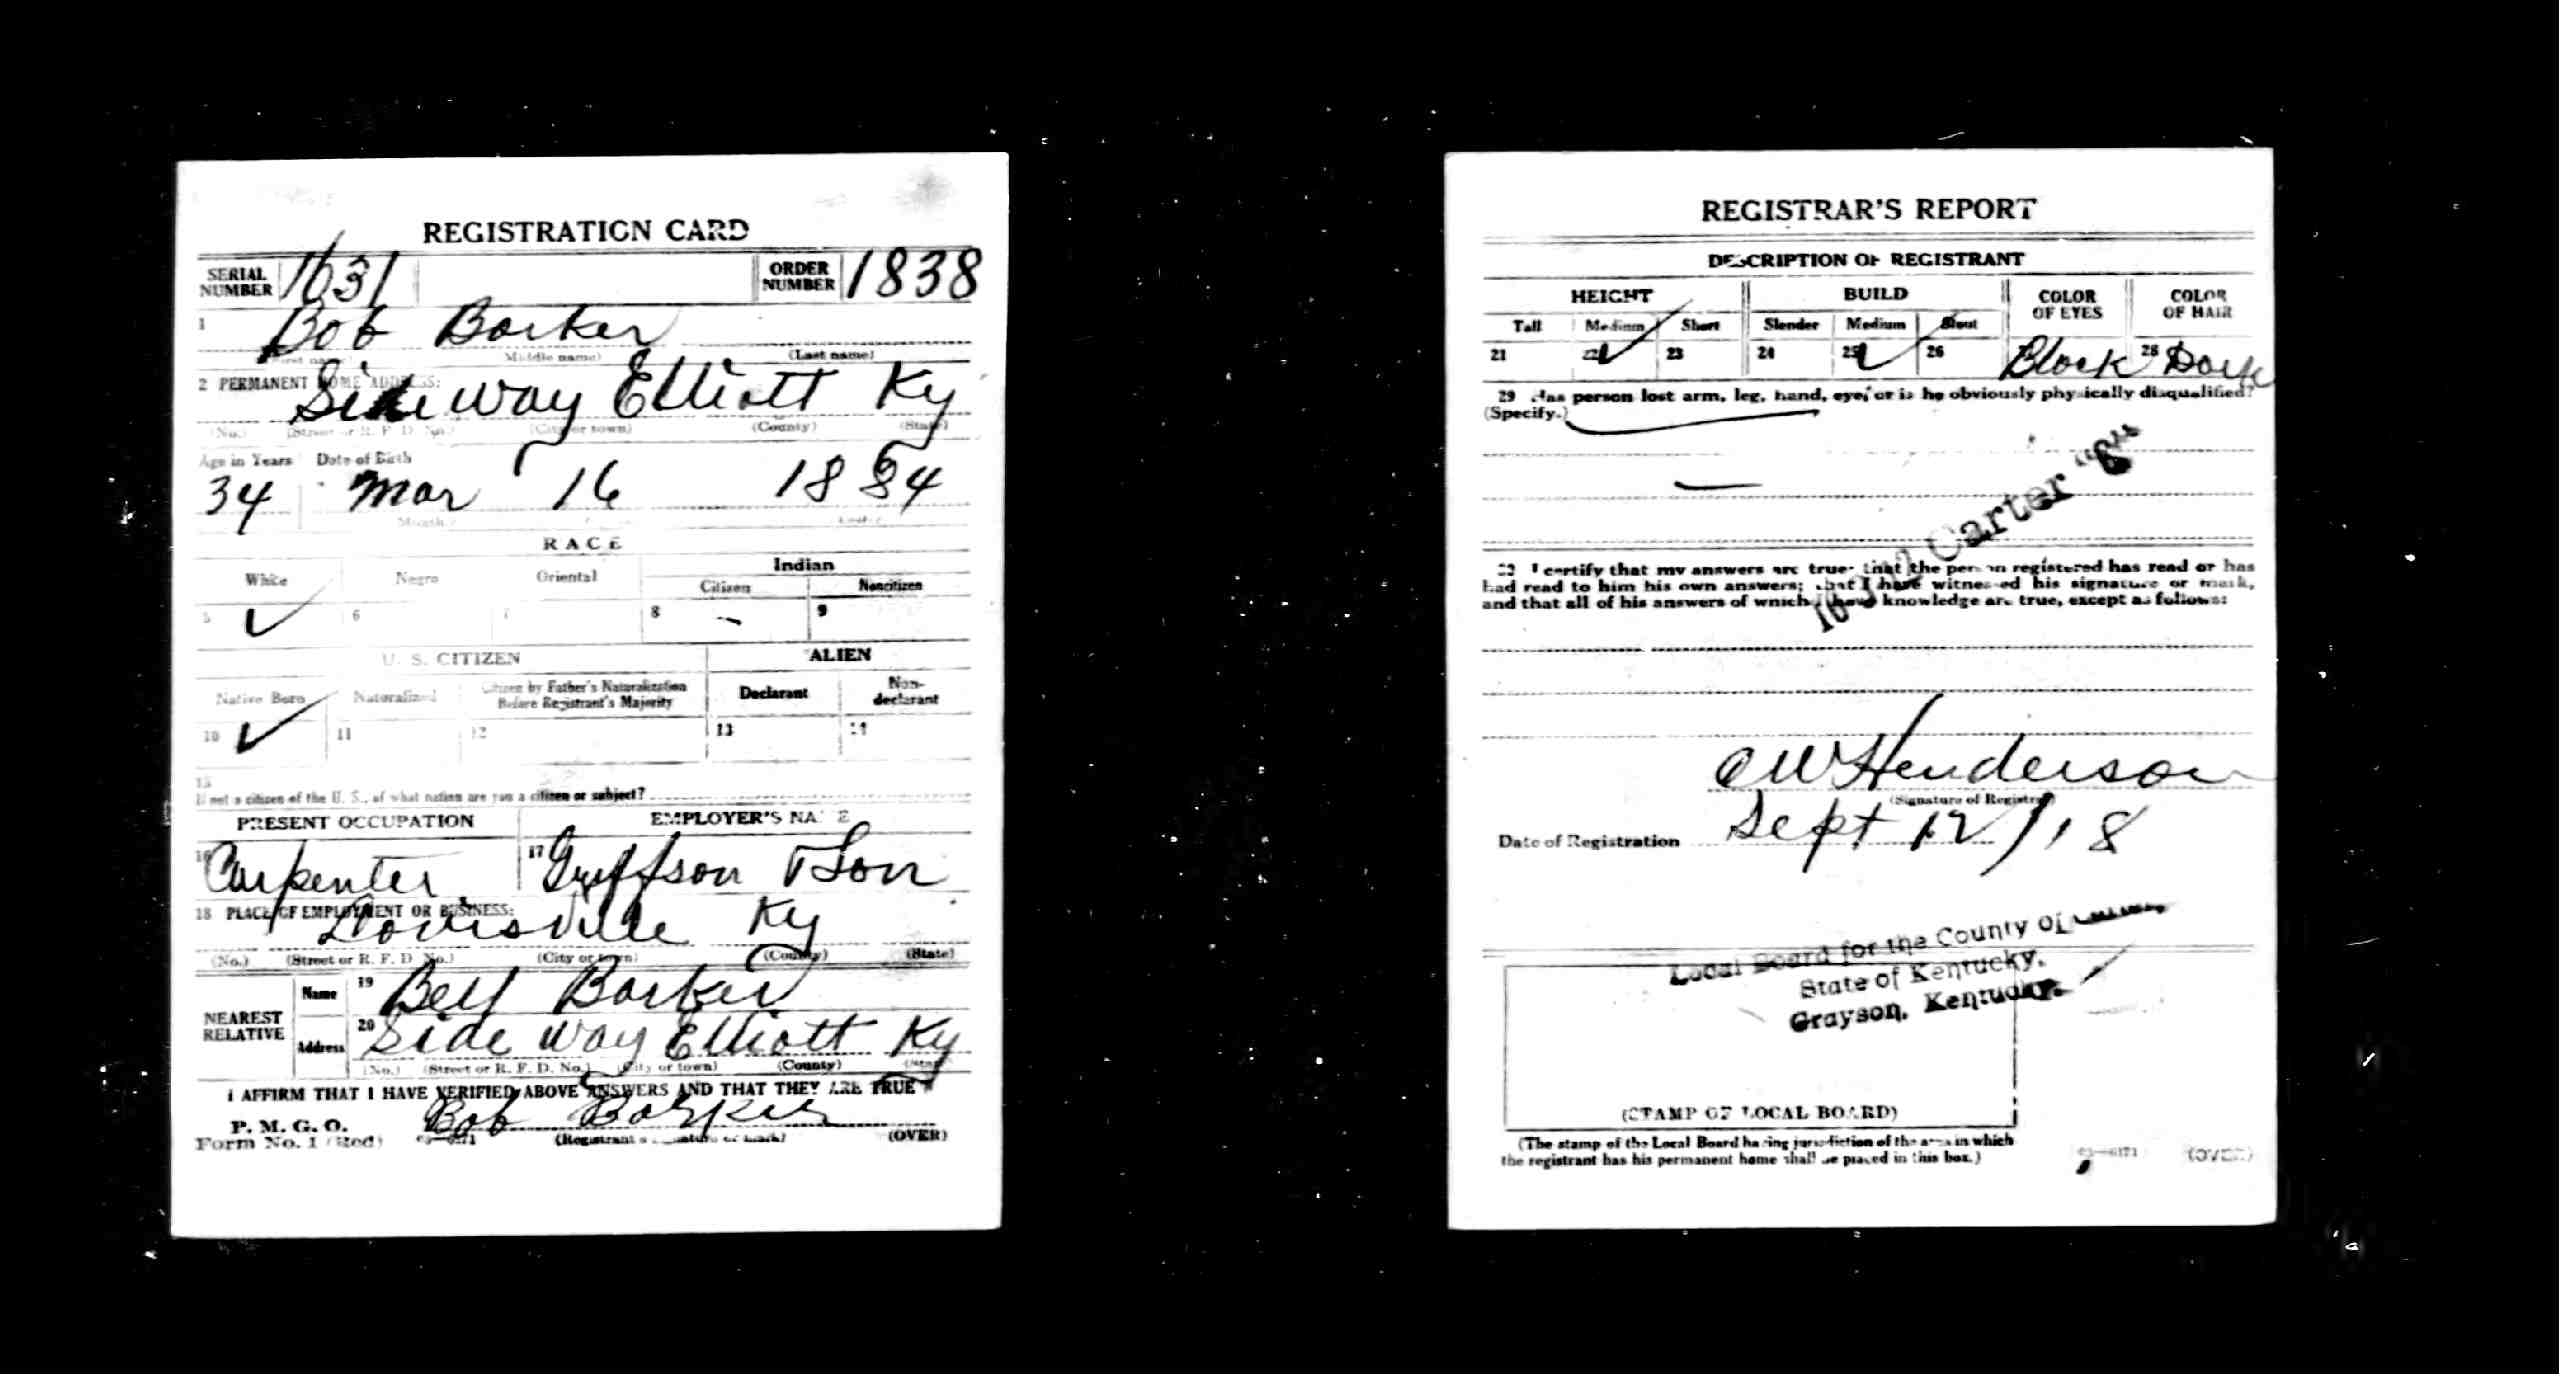 REGISTRATION CARD
SERIAL NUMBER 1631 ORDER NUMBER 1838
1 Bob Barker
(First name) (Middle name) (Last name)
2 PERMANENT HOME ADDRESS:
Side way Elliott Ky
(No.) (Street or R. F. D. No.) (City or town) (County) (State)
Age in Years Date of Birth
34 Mar 16 1884
Month
RACE
White Negro Oriental Indian
Citizen Noncitizen
5 ✓ 6 7 8 9
U. S. CITIZEN ALIEN
Native Born Naturalized Citizen by Father's Naturalization Before Registrant's Majority Declarant Non-declarant
10 ✓ 11 12 13 14
15
If not a citizen of the U. S., of what nation are you a citizen or subject?
PRESENT OCCUPATION EMPLOYER'S NAME
16 Carpenter 17 Son
18 PLACE OF EMPLOYMENT OR BUSINESS:
Louisville Ky
(No.) (Street or R. F. D. No.) (City or town) (County) (State)
NEAREST RELATIVE Name 19 Barker
Address 20 Side way Elliott Ky
(No.) (Street or R. F. D. No.) (City or town) (County) (State)
I AFFIRM THAT I HAVE VERIFIED ABOVE ANSWERS AND THAT THEY ARE TRUE
P. M. G. O.
Form No. 1 (Red) Bob Barker
(Registrant's signature or mark) (OVER)
REGISTRAR'S REPORT
DESCRIPTION OF REGISTRANT
HEIGHT BUILD COLOR OF EYES COLOR OF HAIR
Tall Medium Short Slender Medium Stout
21 22 ✓ 23 24 25 ✓ 26 Black 28 Dark
29 Has person lost arm, leg, hand, eye, or is he obviously physically disqualified?
(Specify.)
Carter
I certify that my answers are true; that the person registered has read or has
had read to him his own answers; that I have witnessed his signature or mark,
and that all of his answers of which I have knowledge are true, except as follows:
C W Henderson
(Signature of Registrar)
Date of Registration Sept 12/18
Local Board for the County of
State of Kentucky.
Grayson, Kentucky.
(STAMP OF LOCAL BOARD)
(The stamp of the Local Board having jurisdiction of the area in which
the registrant has his permanent home shall be placed in this box.)
03—6171 (OVER)